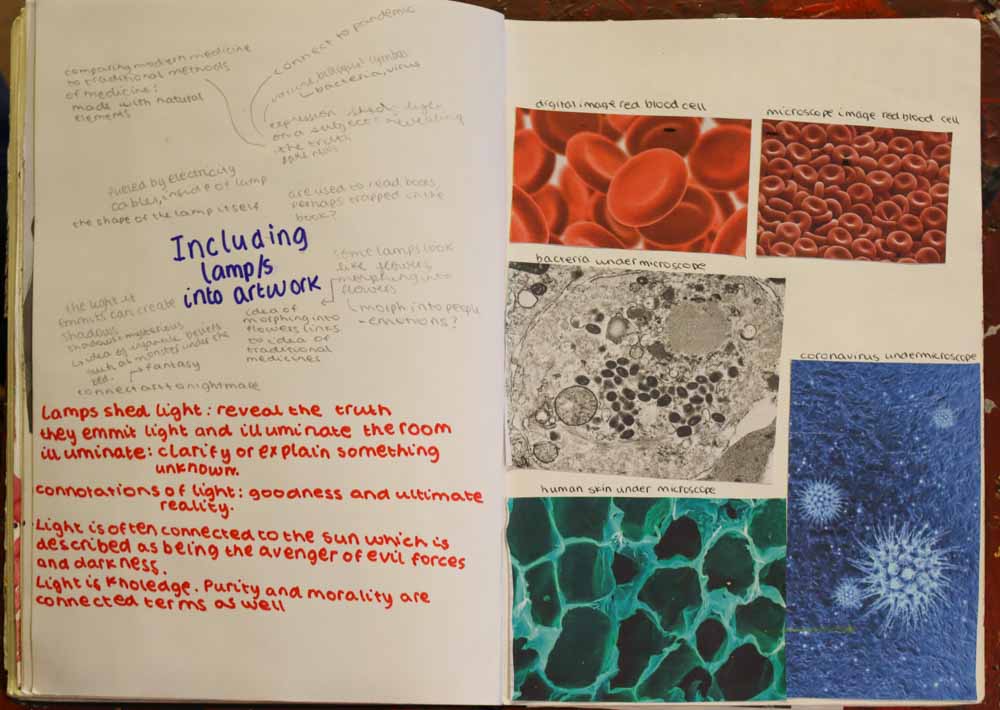 comparing modern medicine
to traditional methods
of medicine:
made with natural
elements
connect to pandemic
bacteria, virus
expression "shed light
on a subject" = revealing
the truth
fueled by electricity
cables, inside of lamp
the shape of the lamp itself
are used to read books
perhaps trapped in the
book?
Including
lamp/s
into artwork
some lamps look
like flowers
morphing into
flowers
morph into people
- emotions?
idea of
morphing into
flowers links
to idea of
traditional
medicines
the light it
emmits can create
shadows
shadows = mysterious
idea of
such as monsters under the
bed.
fantasy
connect art to nightmare
Lamps shed light: reveal the truth
they emmit light and illuminate the room
illuminate: clarify or explain something
unknown.
connotations of light: goodness and ultimate
reality.
Light is often connected to the sun which is
described as being the avenger of evil forces
and darkness.
Light is knoledge. Purity and morality are
connected terms as well
digital image red blood cell
microscope image red blood cell
bacteria under microscope
coronavirus under microscope
human skin under microscope